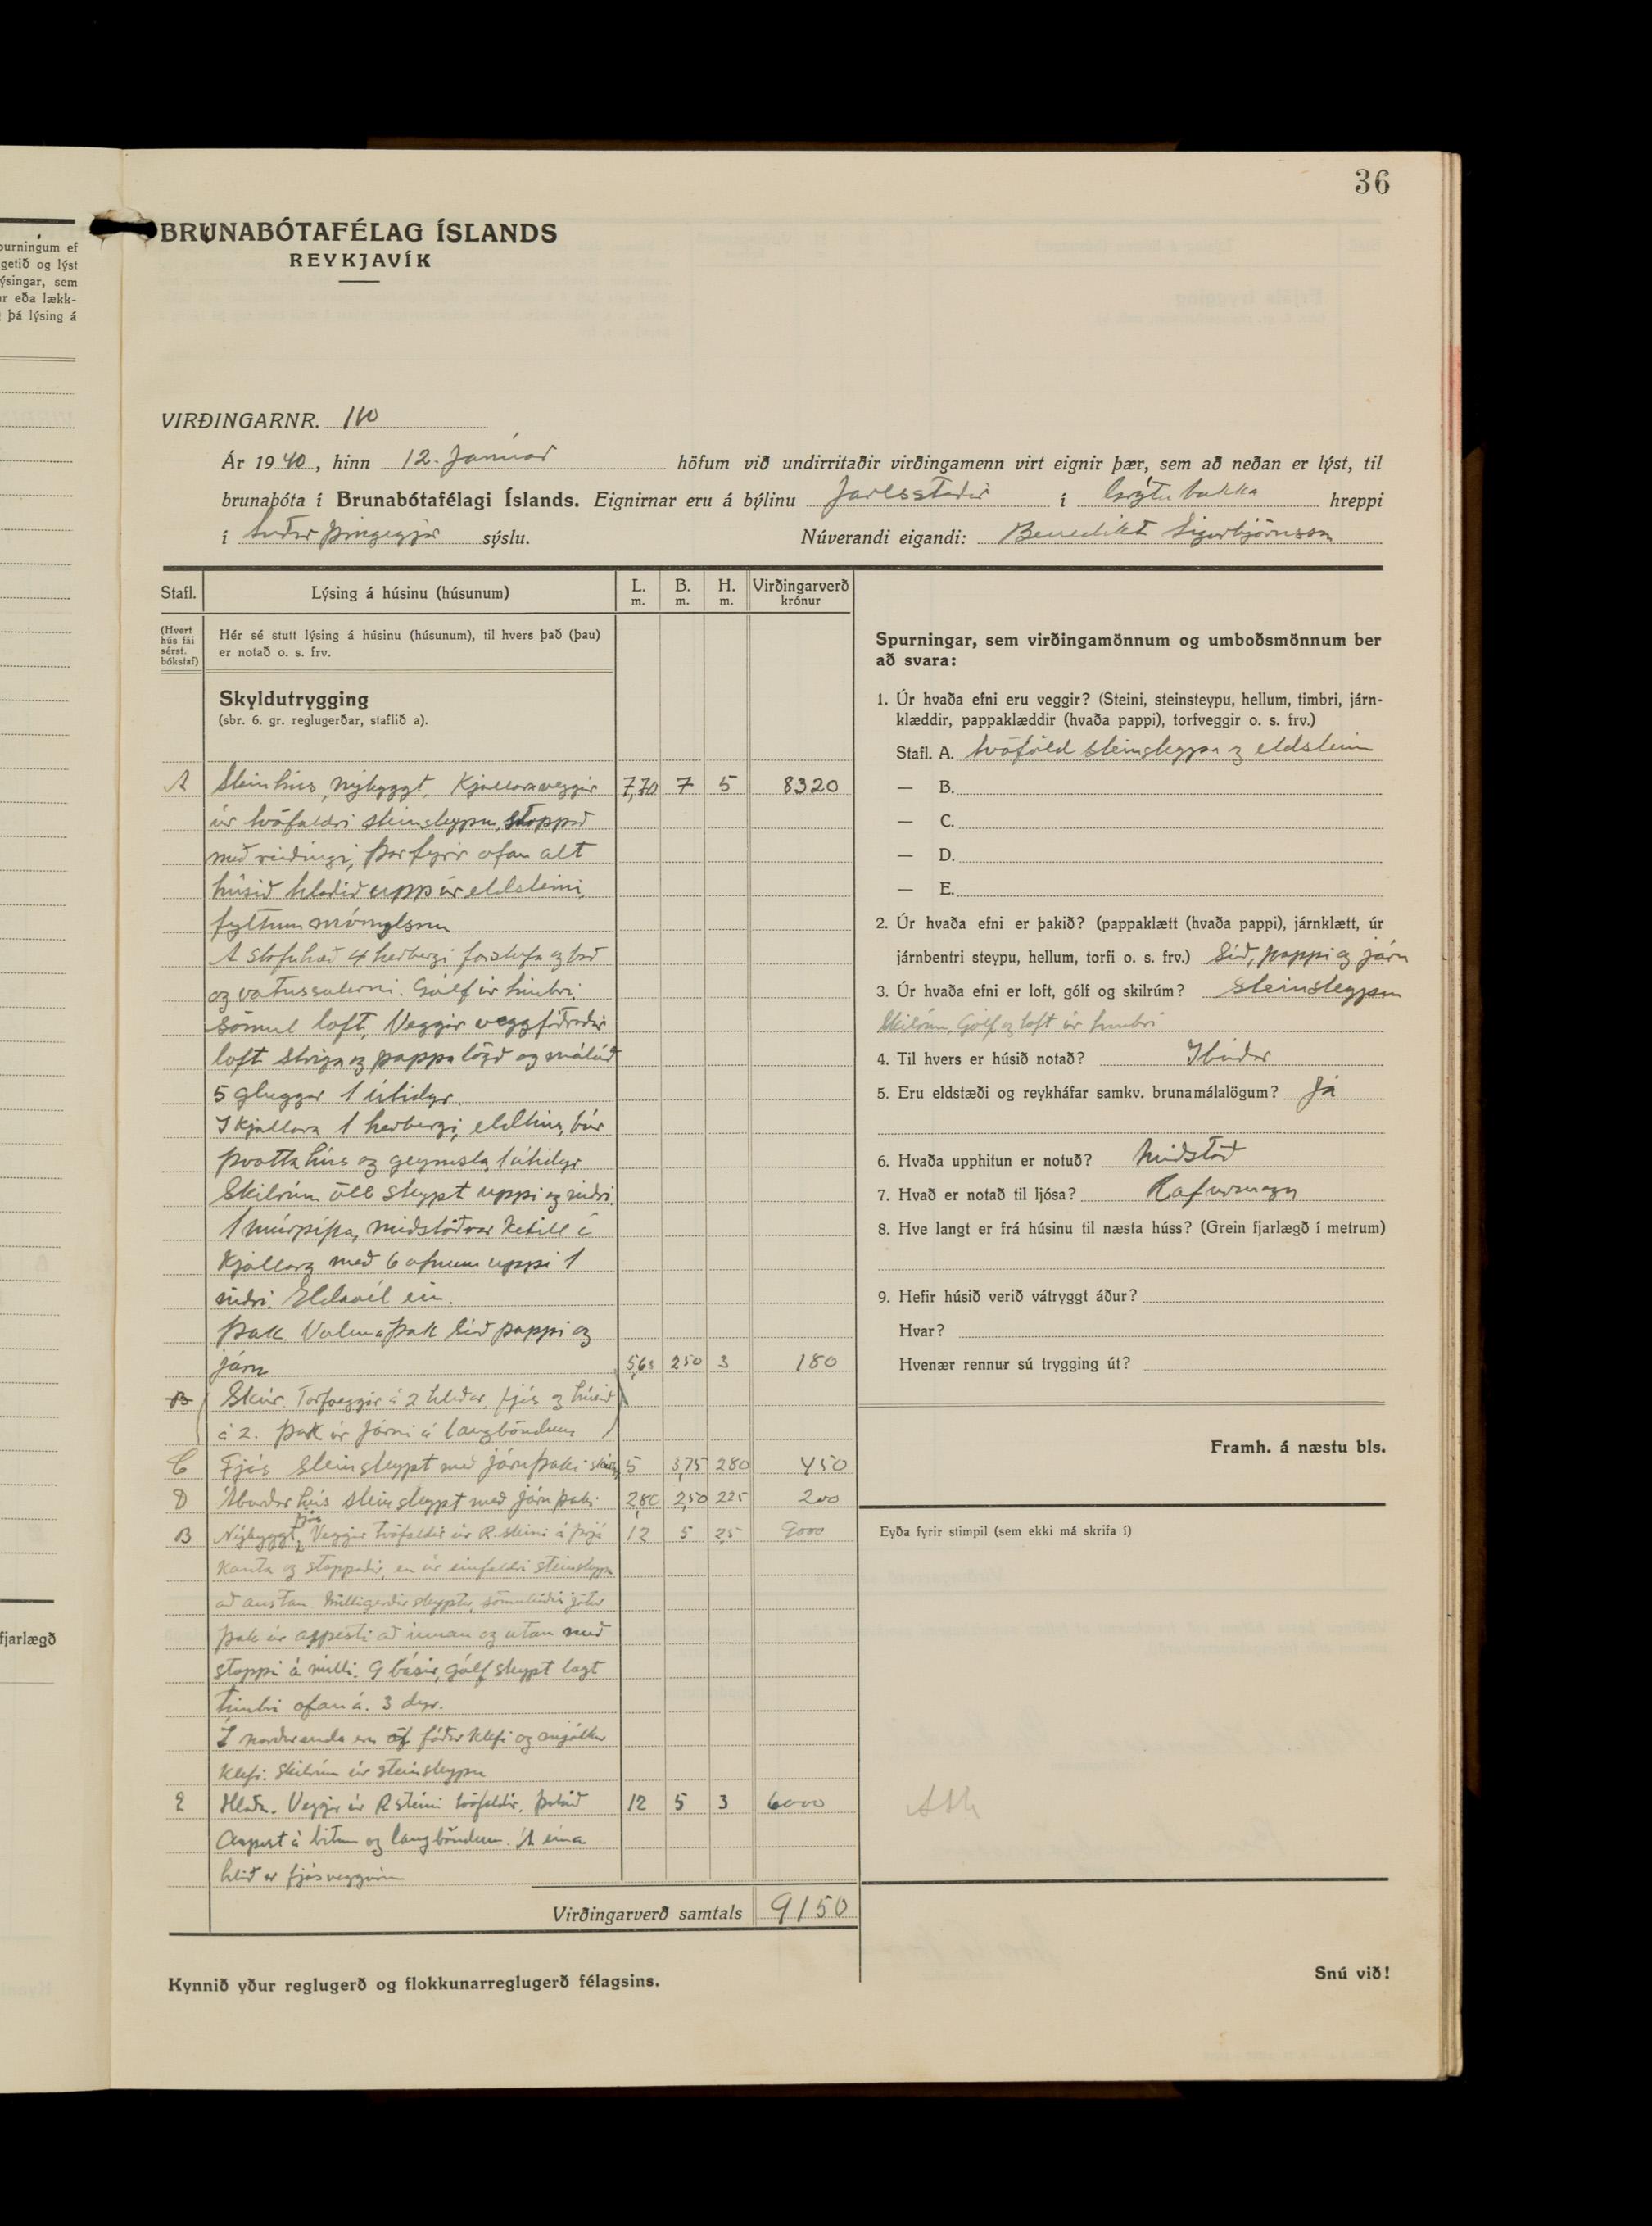 36
BRUNABÓTAFÉLAG ÍSLANDS
REYKJAVÍK
VIRÐINGARNR. 110
Ár 1940, hinn 12. Janúar höfum við undirritaðir virðingamenn virt eignir þær, sem að neðan er lýst, til
brunabóta í Brunabótafélagi Íslands. Eignirnar eru á býlinu Jarlsstaðir í Grýtubakka hreppi
í Suður þingeyjar sýslu. Núverandi eigandi: Benedikt Sigurbjörnsson
Stafl. Lýsing á húsinu (húsunum) L. m. B. m. H. m. Virðingarverð krónur
(Hvert hús fái sérst. bókstaf)
Hér sé stutt lýsing á húsinu (húsunum), til hvers það (þau)
er notað o. s. frv.
Skyldutrygging
(sbr. 6. gr. reglugerðar, staflið a).
A Steinhús, nýbyggt. Kjallaraveggir 7,70 7 5 8320
úr tvöfaldri steinsteypu, stoppað
með reiðingi, þar fyrir ofan alt
húsið hlaðið upp úr eldsteini,
fyltum mómylsnu
Á stofuhæð 4 herbergi forstofa og bað
og vatnssalerni. Gólf úr timbri,
sömul. loft, Veggir veggfóðraðir
loft striga og pappa lögð og máluð
5 gluggar 1 útidyr.
Í kjallara 1 herbergi, eldhús, búr
þvottahús og geymsla, 1 útidyr
Skilrúm öll steypt uppi og niðri.
1 múrpípa, miðstöðvar ketill í
Kjallara með 6 ofnum uppi 1
niðri. Eldavél ein.
Þak. Valmaþak Súð pappi og
járn 5,63 250 3 180
B Skúr. Torfveggir á 2 hliðar, fjós og húsið
á 2. þak úr Járni á langböndum
C Fjós steinsteypt með járnþaki 5 3,75 280 450
D Áburðarhús steinsteypt með járn þaki 2,80 2,50 225 200
B Nýbyggt fjós, Veggir tvöfaldir úr R. steini á þrjá 12 5 2,5 9000
kanta og stoppaðir, en úr einfaldri steinsteypu
að austan. Milligerðir steyptar, sömuleiðis jötur
Þak úr aspesti að innan og utan með
stoppi á milli. 9 básar, gólf steypt lagt
timbri ofan á. 3 dyr.
Í norðurenda eru fóður klefi og mjólkur
klefi. Skilrúm úr steinsteypu
E Hlaða. Veggir úr R steini tvöfaldir. Þakið 12 5 3 6000
Aspest á bitum og langböndum. Á eina
hlið er fjósveggurinn
Virðingarverð samtals 9150
Kynnið yður reglugerð og flokkunarreglugerð félagsins.
Spurningar, sem virðingamönnum og umboðsmönnum ber
að svara:
1. Úr hvaða efni eru veggir? (Steini, steinsteypu, hellum, timbri, járn-
klæddir, pappaklæddir (hvaða pappi), torfveggir o. s. frv.)
Stafl. A. tvöföld steinsteypa og eldsteinn
— B.
— C.
— D.
— E.
2. Úr hvaða efni er þakið? (pappaklætt (hvaða pappi), járnklætt, úr
járnbentri steypu, hellum, torfi o. s. frv.) Súð, pappi og járn
3. Úr hvaða efni er loft, gólf og skilrúm? Steinsteypu
Skilrúm, Gólf og loft úr timbri
4. Til hvers er húsið notað? Íbúðar
5. Eru eldstæði og reykháfar samkv. brunamálalögum? Já
6. Hvaða upphitun er notuð? Miðstöð
7. Hvað er notað til ljósa? Rafurmagn
8. Hve langt er frá húsinu til næsta húss? (Grein fjarlægð í metrum)
9. Hefir húsið verið vátryggt áður?
Hvar?
Hvenær rennur sú trygging út?
Framh. á næstu bls.
Eyða fyrir stimpil (sem ekki má skrifa í)
Ath
Snú við!
purningum ef
getið og lýst
ýsingar, sem
ar eða lækk-
þá lýsing á
fjarlægð